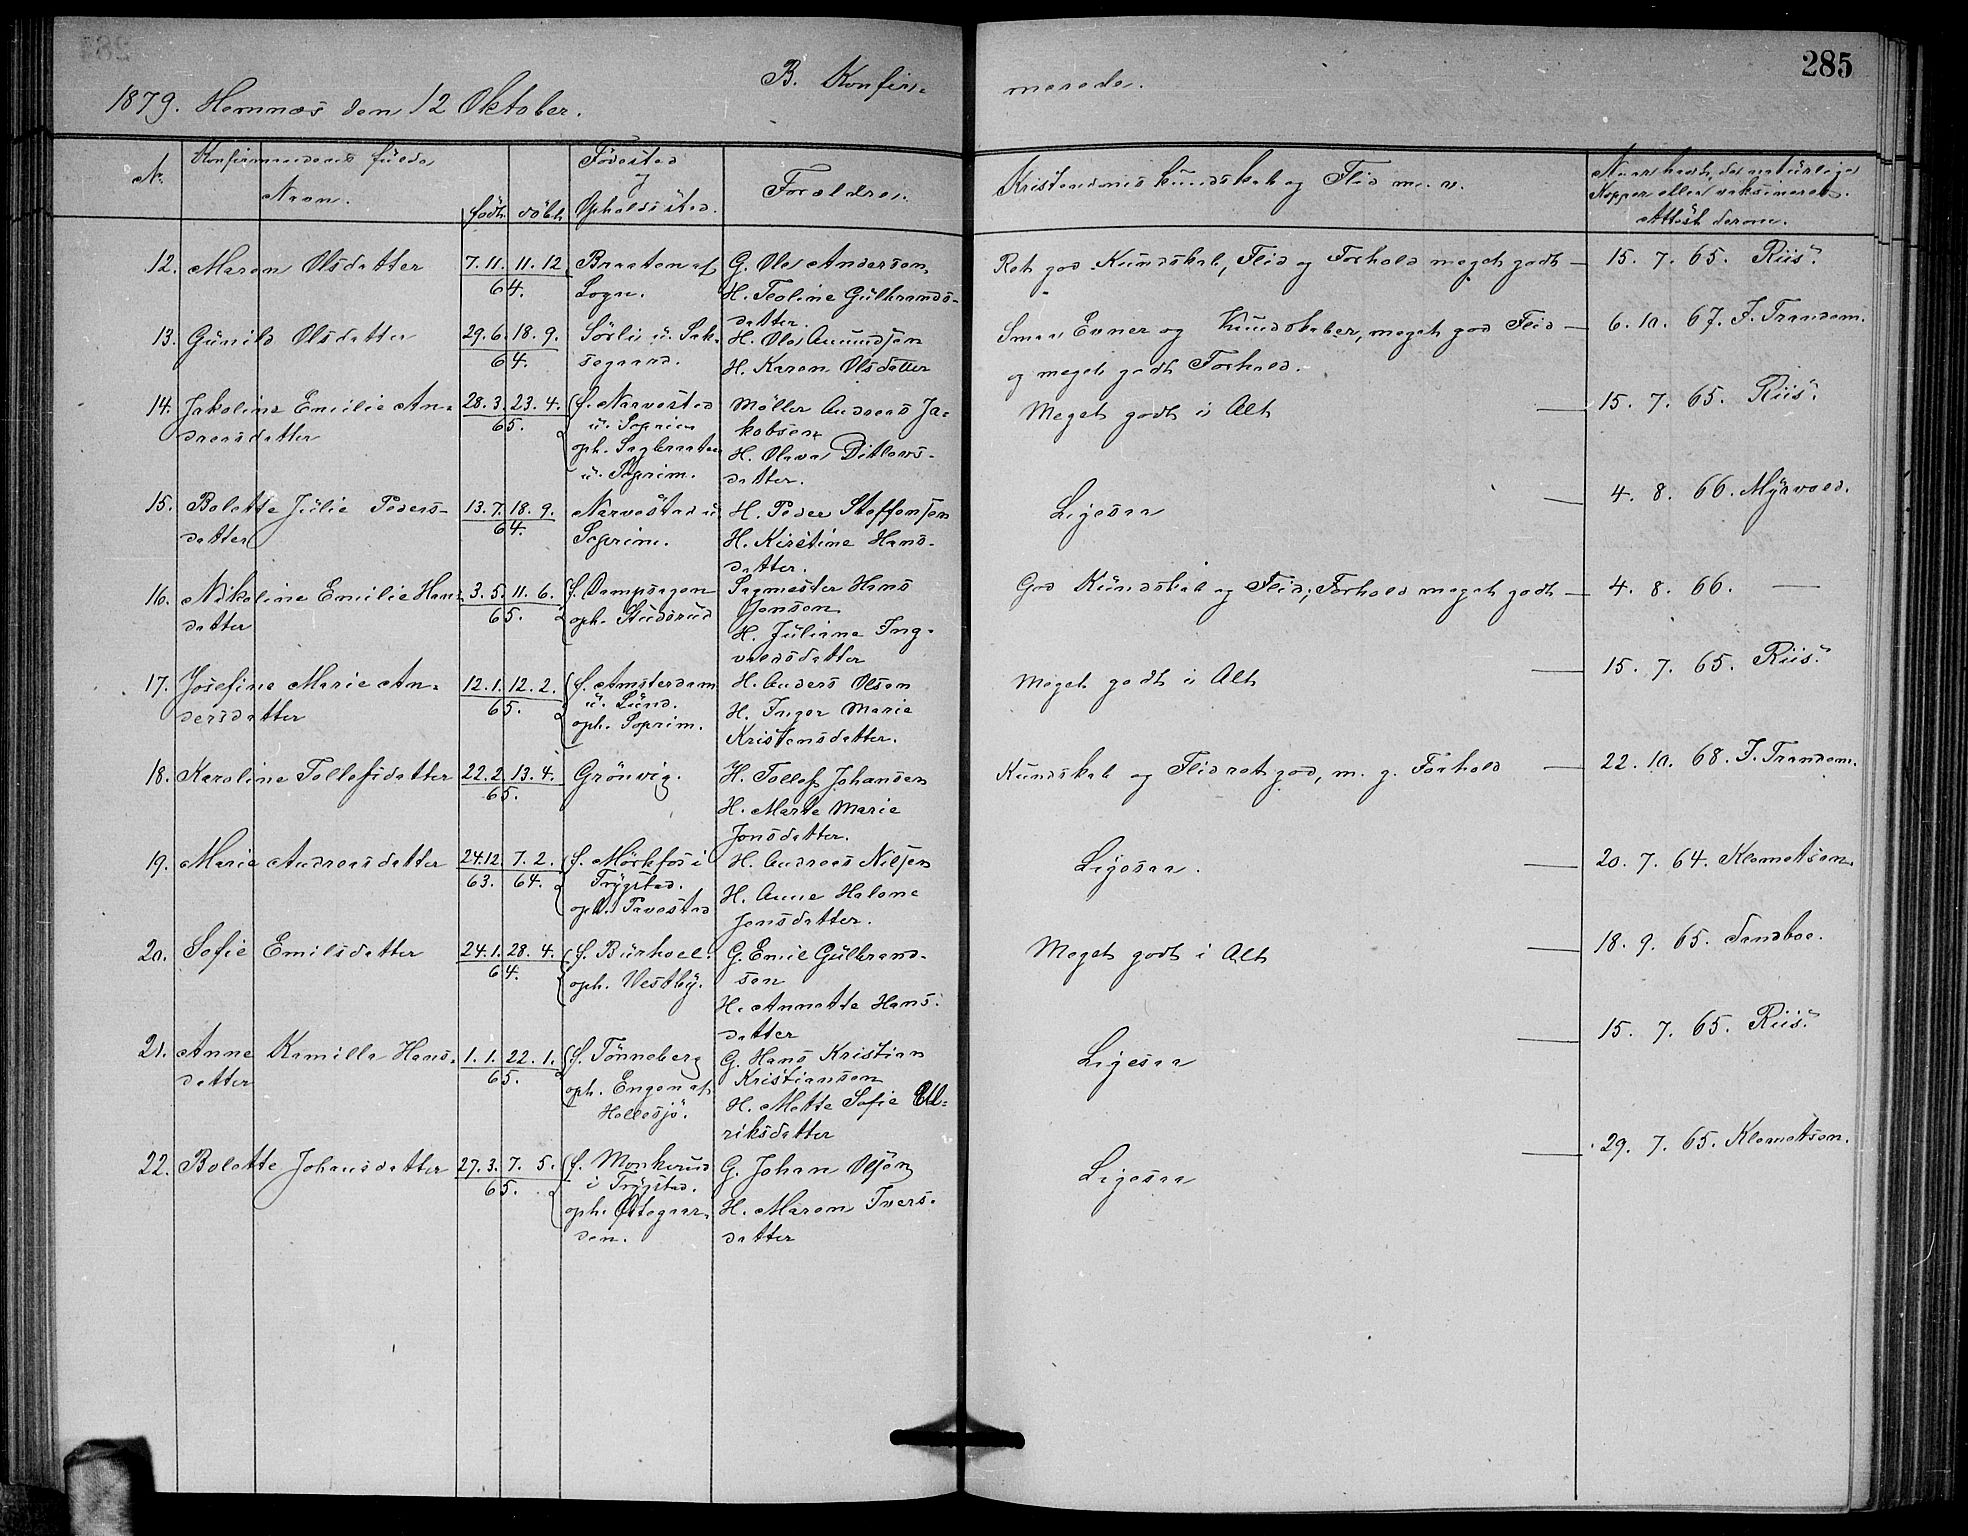 285
B. Konfir-
merede.
1879. Hemnæs den 12 Oktober.
No.
Konfirmandens fulde
Navn.
født
døbt
Fødested
og
Opholdssted.
Forældre.
Kristendomskundskab og Flid m. v.
Naar havt de naturlige
Kopper eller vaksineret.
Attest derom.
12. Maren Olsdatter
7. 11. 11. 12
64.
Braaten af
Sogn.
G. Ole Andersen
H. Teoline Gulbrands-
datter.
Ret god Kundskab, Flid og Forhold meget godt —
15. 7. 65. Riis.
13. Gunild Olsdatter
29. 6. 18. 9.
64.
Sørli u. Sak-
segaard.
H. Ole Amundsen
H. Karen Olsdatter
Smaa Evner og Kundskaber, meget god Flid —
og meget godt Forhold.
6. 10. 67. J. Trandem.
14. Jakoline Emilie An-
dreasdatter
28. 3. 23. 4.
65.
f. Narvestad
u. Soprim
oph. Sagbraaten
u. Soprim.
Møller Andreas Ja-
kobsen
H. Olava Ditlevs-
datter.
Meget godt i Alt —
15. 7. 65. Riis.
15. Bolette Julie Peders-
datter
13. 7. 18. 9.
64.
Narvestad u.
Soprim.
H. Peder Steffensen
H. Kirstine Hans-
datter.
Ligesaa —
4. 8. 66. Myrvold.
16. Nikoline Emilie Hans-
datter
3. 5. 11. 6.
65.
f. Dampsagen
oph. Studsrud
Sagmester Hans
Jensen
H. Juliane Ing-
valdsdatter
God Kundskab og Flid; Forhold meget godt —
4. 8. 66. —
17. Josefine Marie An-
dersdatter
12. 1. 12. 2.
65.
f. Amsterdam
u. Lund.
oph. Soprim.
H. Anders Olsen
H. Inger Marie
Kristensdatter.
Meget godt i Alt —
15. 7. 65. Riis.
18. Karoline Tollefsdatter
22. 2. 13. 4.
65.
Grønvig.
H. Tollef Johansen
H. Marte Marie
Jonsdatter.
Kundskab og Flid ret god, m. g. Forhold —
22. 10. 68. J. Trandem.
19. Marie Andreasdatter
24. 12. 7. 2.
63. 64.
f. Mørkfos i
Trygstad.
oph. Tavestad
H. Andreas Nilsen
H. Anne Helene
Jensdatter.
Ligesaa. —
20. 7. 64. Klemetsen.
20. Sofie Emilsdatter
24. 1. 28. 4.
64.
f. Burhoel.
oph. Vestby.
G. Emil Gulbrand-
sen
H. Annette Hans-
datter
Meget godt i Alt —
18. 9. 65. Sandboe.
21. Anne Kamilla Hans-
datter
1. 1. 22. 1.
65.
f. Tønneberg
oph. Engen af
Hellesjø.
G. Hans Kristian
Kristiansen
H. Mette Sofie Ul-
riksdatter
Ligesaa —
15. 7. 65. Riis.
22. Bolette Johansdatter
27. 3. 7. 5.
65.
f. Monkerud
i Trygstad.
oph. Østegaar-
den.
G. Johan Olsen
H. Maren Ivers-
datter
Ligesaa —
29. 7. 65. Klemetsen.